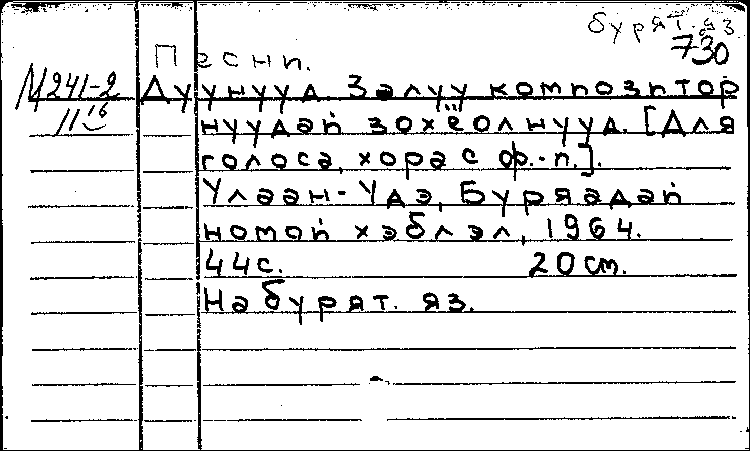 бурят. яз
730
Песни.
М241-2
11 16
Дуунууд. Залуу композитор
нуудай зохёолнууд. [Для
голоса, хора с ф.-п.].
Улаан-Удэ, Буряадай
номой хэблэл, 1964.
44с. 20 см.
На бурят. яз.